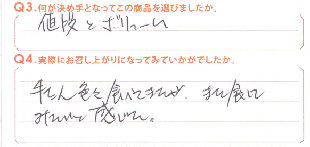 Q3.何が決め手となってこの商品を選びましたか。
値段とボリューム
Q4.実際にお召し上がりになってみていかがでしたか。
食べてきたが、また食して
みたいと感じた。